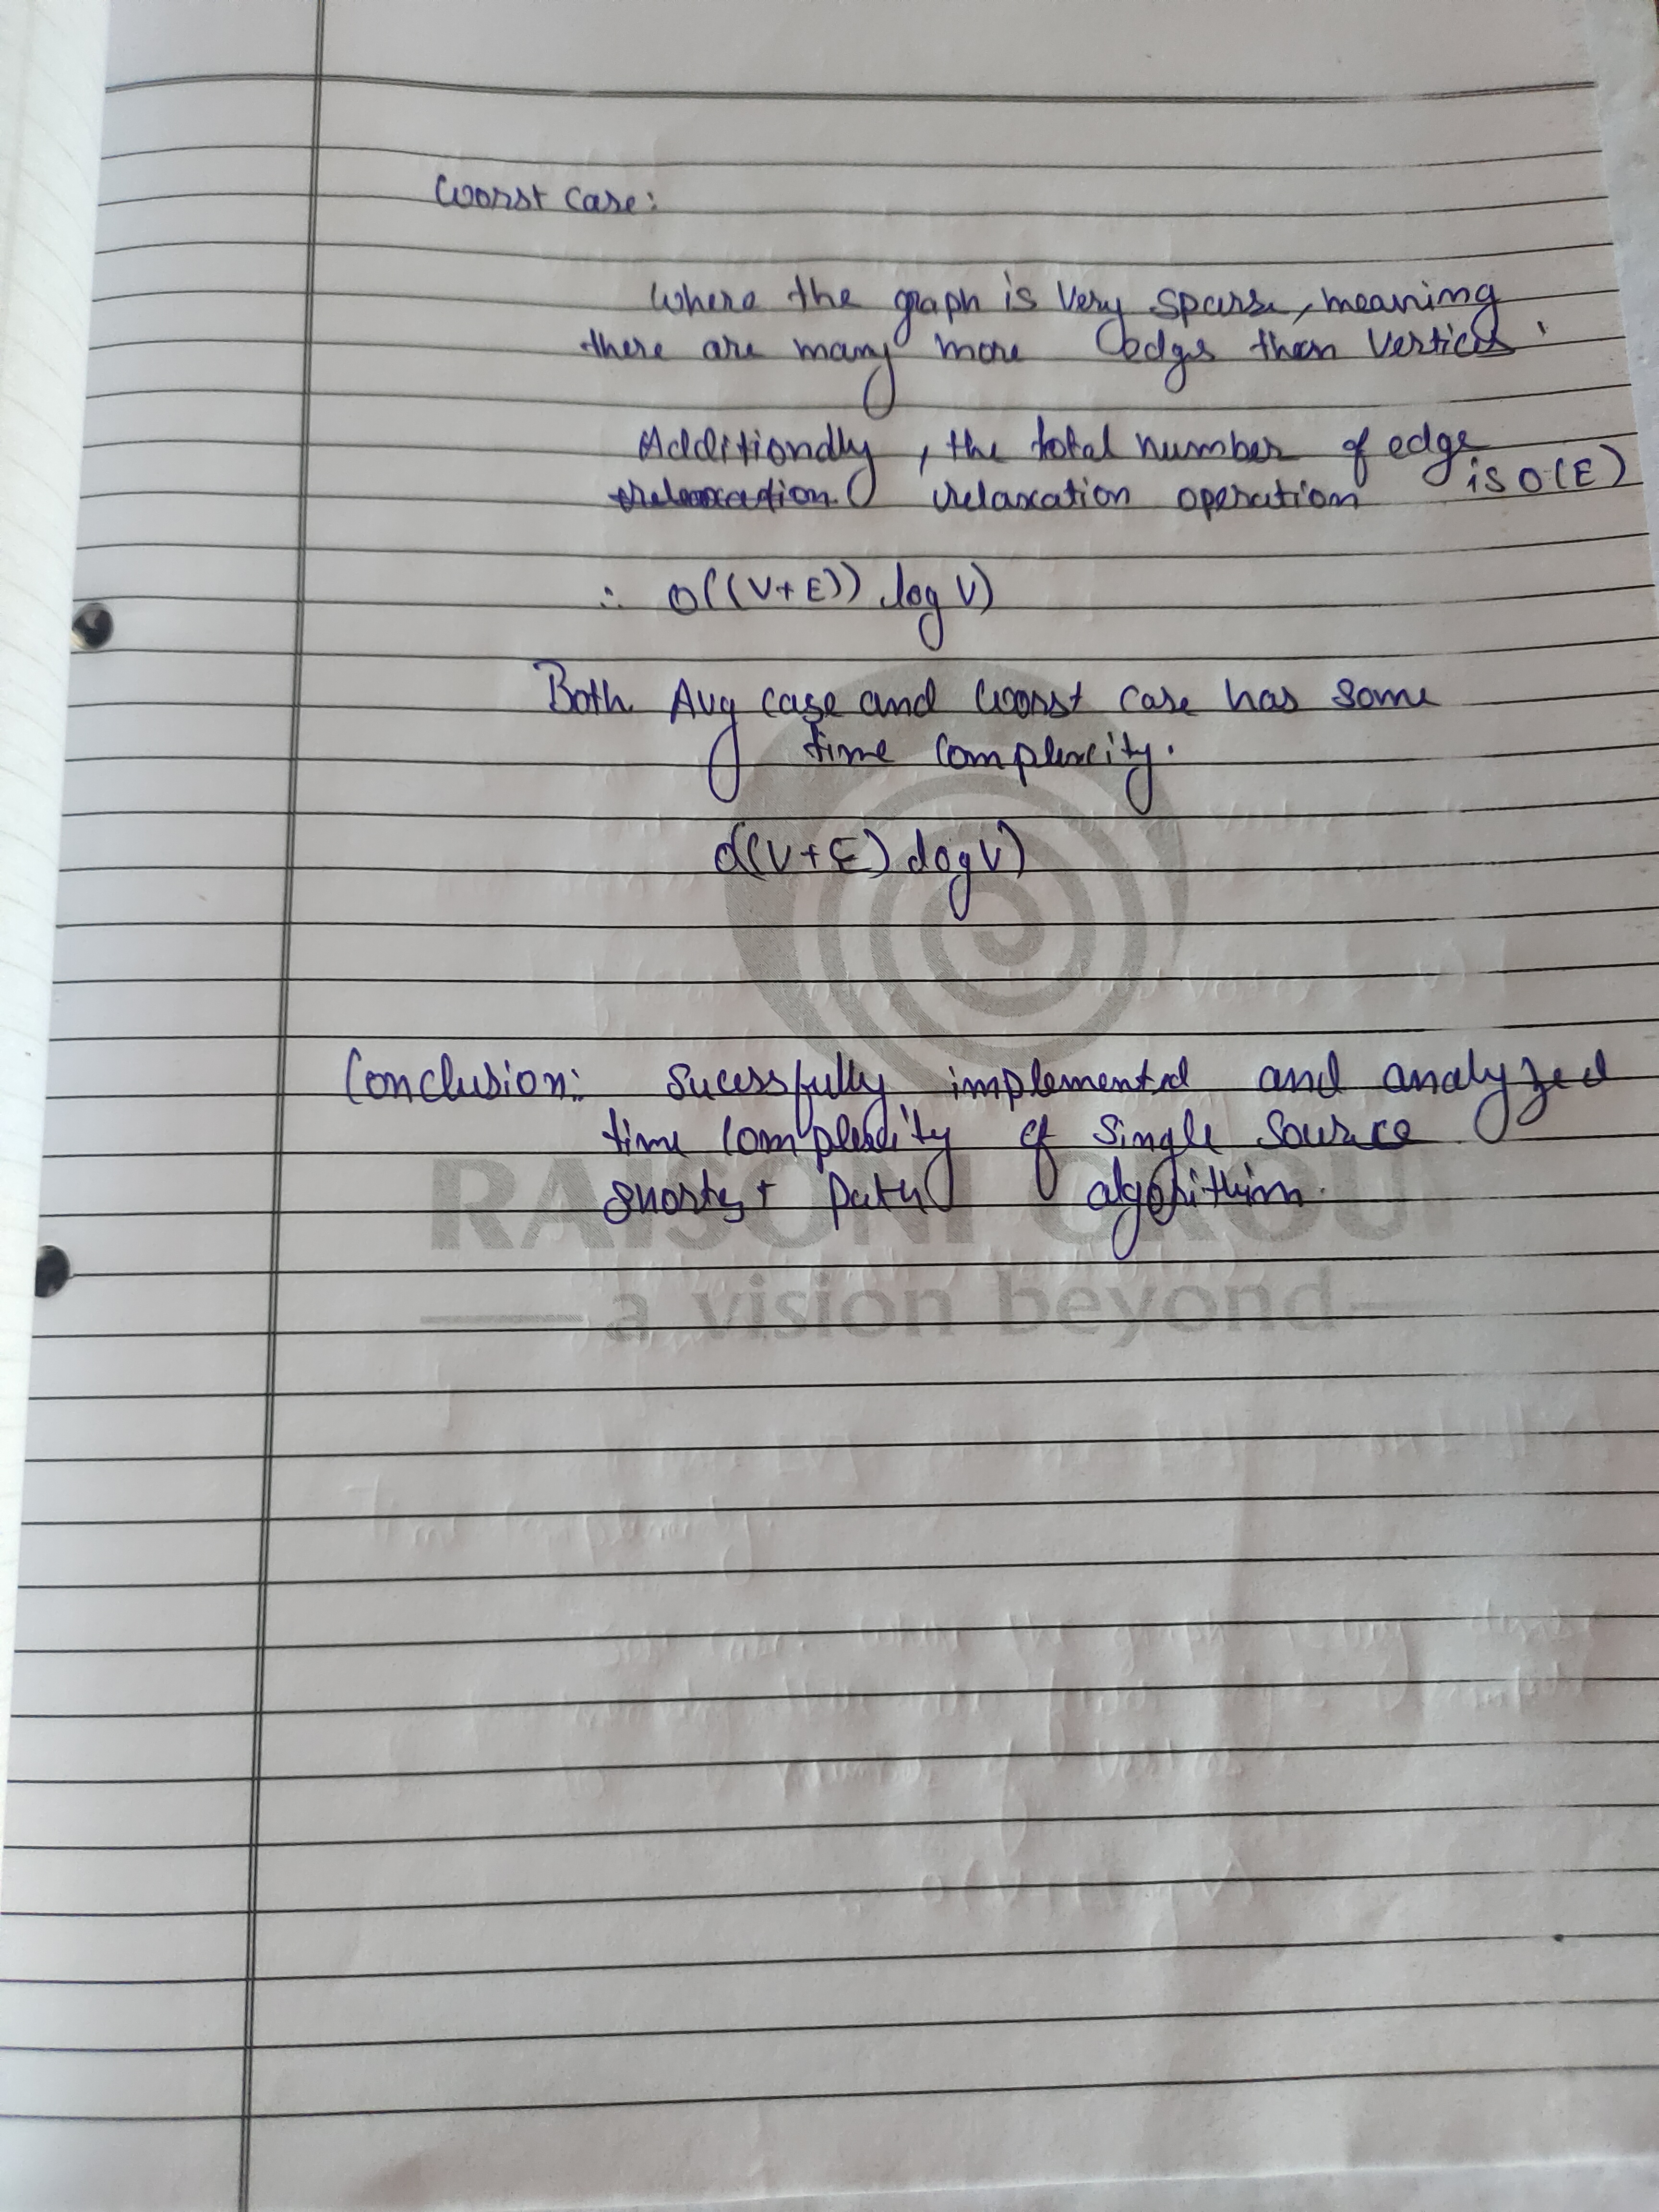 Worst case:
Where the graph is very sparse, meaning
there are many more edges than vertices.
Additionally, the total number of edge
relaxation operation is O(E)
∴ O((V+E)) log V)
Both Avg case and Worst case has some
time complexity.
O((V+E) log V)
Conclusion: Sucessfully implemented and analyzed
time complexity of Single Source
shortest path algorithim.
RAISONI GROU
a vision beyond